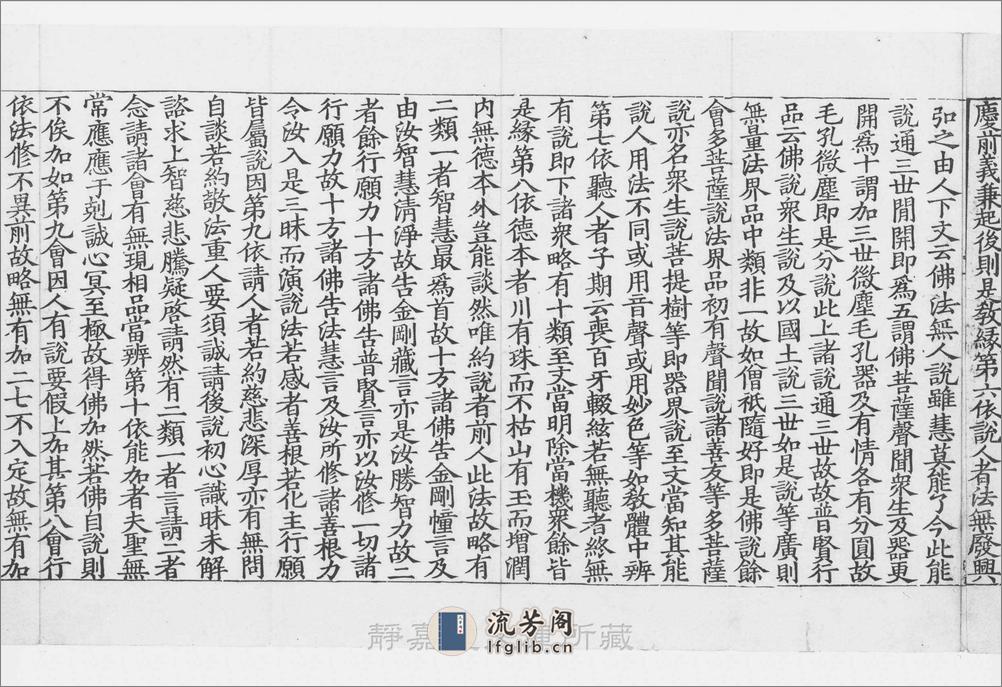 塵前義兼起後則是教緣第六依說人者法無廢興
弘之由人下文云佛法無人說雖慧莫能了今此能
說通三世閒開即爲五謂佛菩薩聲聞衆生及器更
開爲十謂加三世微塵毛孔器及有情各有分圓故
毛孔微塵即是分說此上諸說通三世故故普賢行
品云佛說衆生說及以國土說三世如是說等廣則
無量法界品中類非一故如僧祇隨好即是佛說餘
會多菩薩說法界品初有聲聞說諸善友等多菩薩
說亦名衆生說菩提樹等即器界說至文當知其能
說人用法不同或用音聲或用妙色等如敎體中辨
第七依聽人者子期云喪百牙輟絃若無聽者終無
有說即下諸衆略有十類至文當明除當機衆餘皆
是緣第八依德本者川有珠而不枯山有玉而增潤
内無德本外豈能談然唯約說者前人此法故略有
二類一者智慧最爲首故十方諸佛告金剛幢言及
由汝智慧清淨故告金剛藏言亦是汝勝智力故二
者餘行願力十方諸佛告普賢言亦以汝修一切諸
行願力故十方諸佛告法慧言及汝所修諸善根力
令汝入是三昧而演說法若感者善根若化主行願
皆屬說因第九依請人者若約慈悲深厚亦有無問
自談若約敬法重人要須誠請後說初心識昧未解
諮求上智慈悲騰疑啓請然有二類一者言請二者
念請諸會有無現相品當辨第十依能加者夫聖無
常應應于剋誠心冥至極故得佛加然若佛自說則
不俟加如第九會因人有說要假上加其第八會行
依法修不異前故略無有加二七不入定故無有加
靜嘉堂文庫所藏
流芳阁
lfglib.com